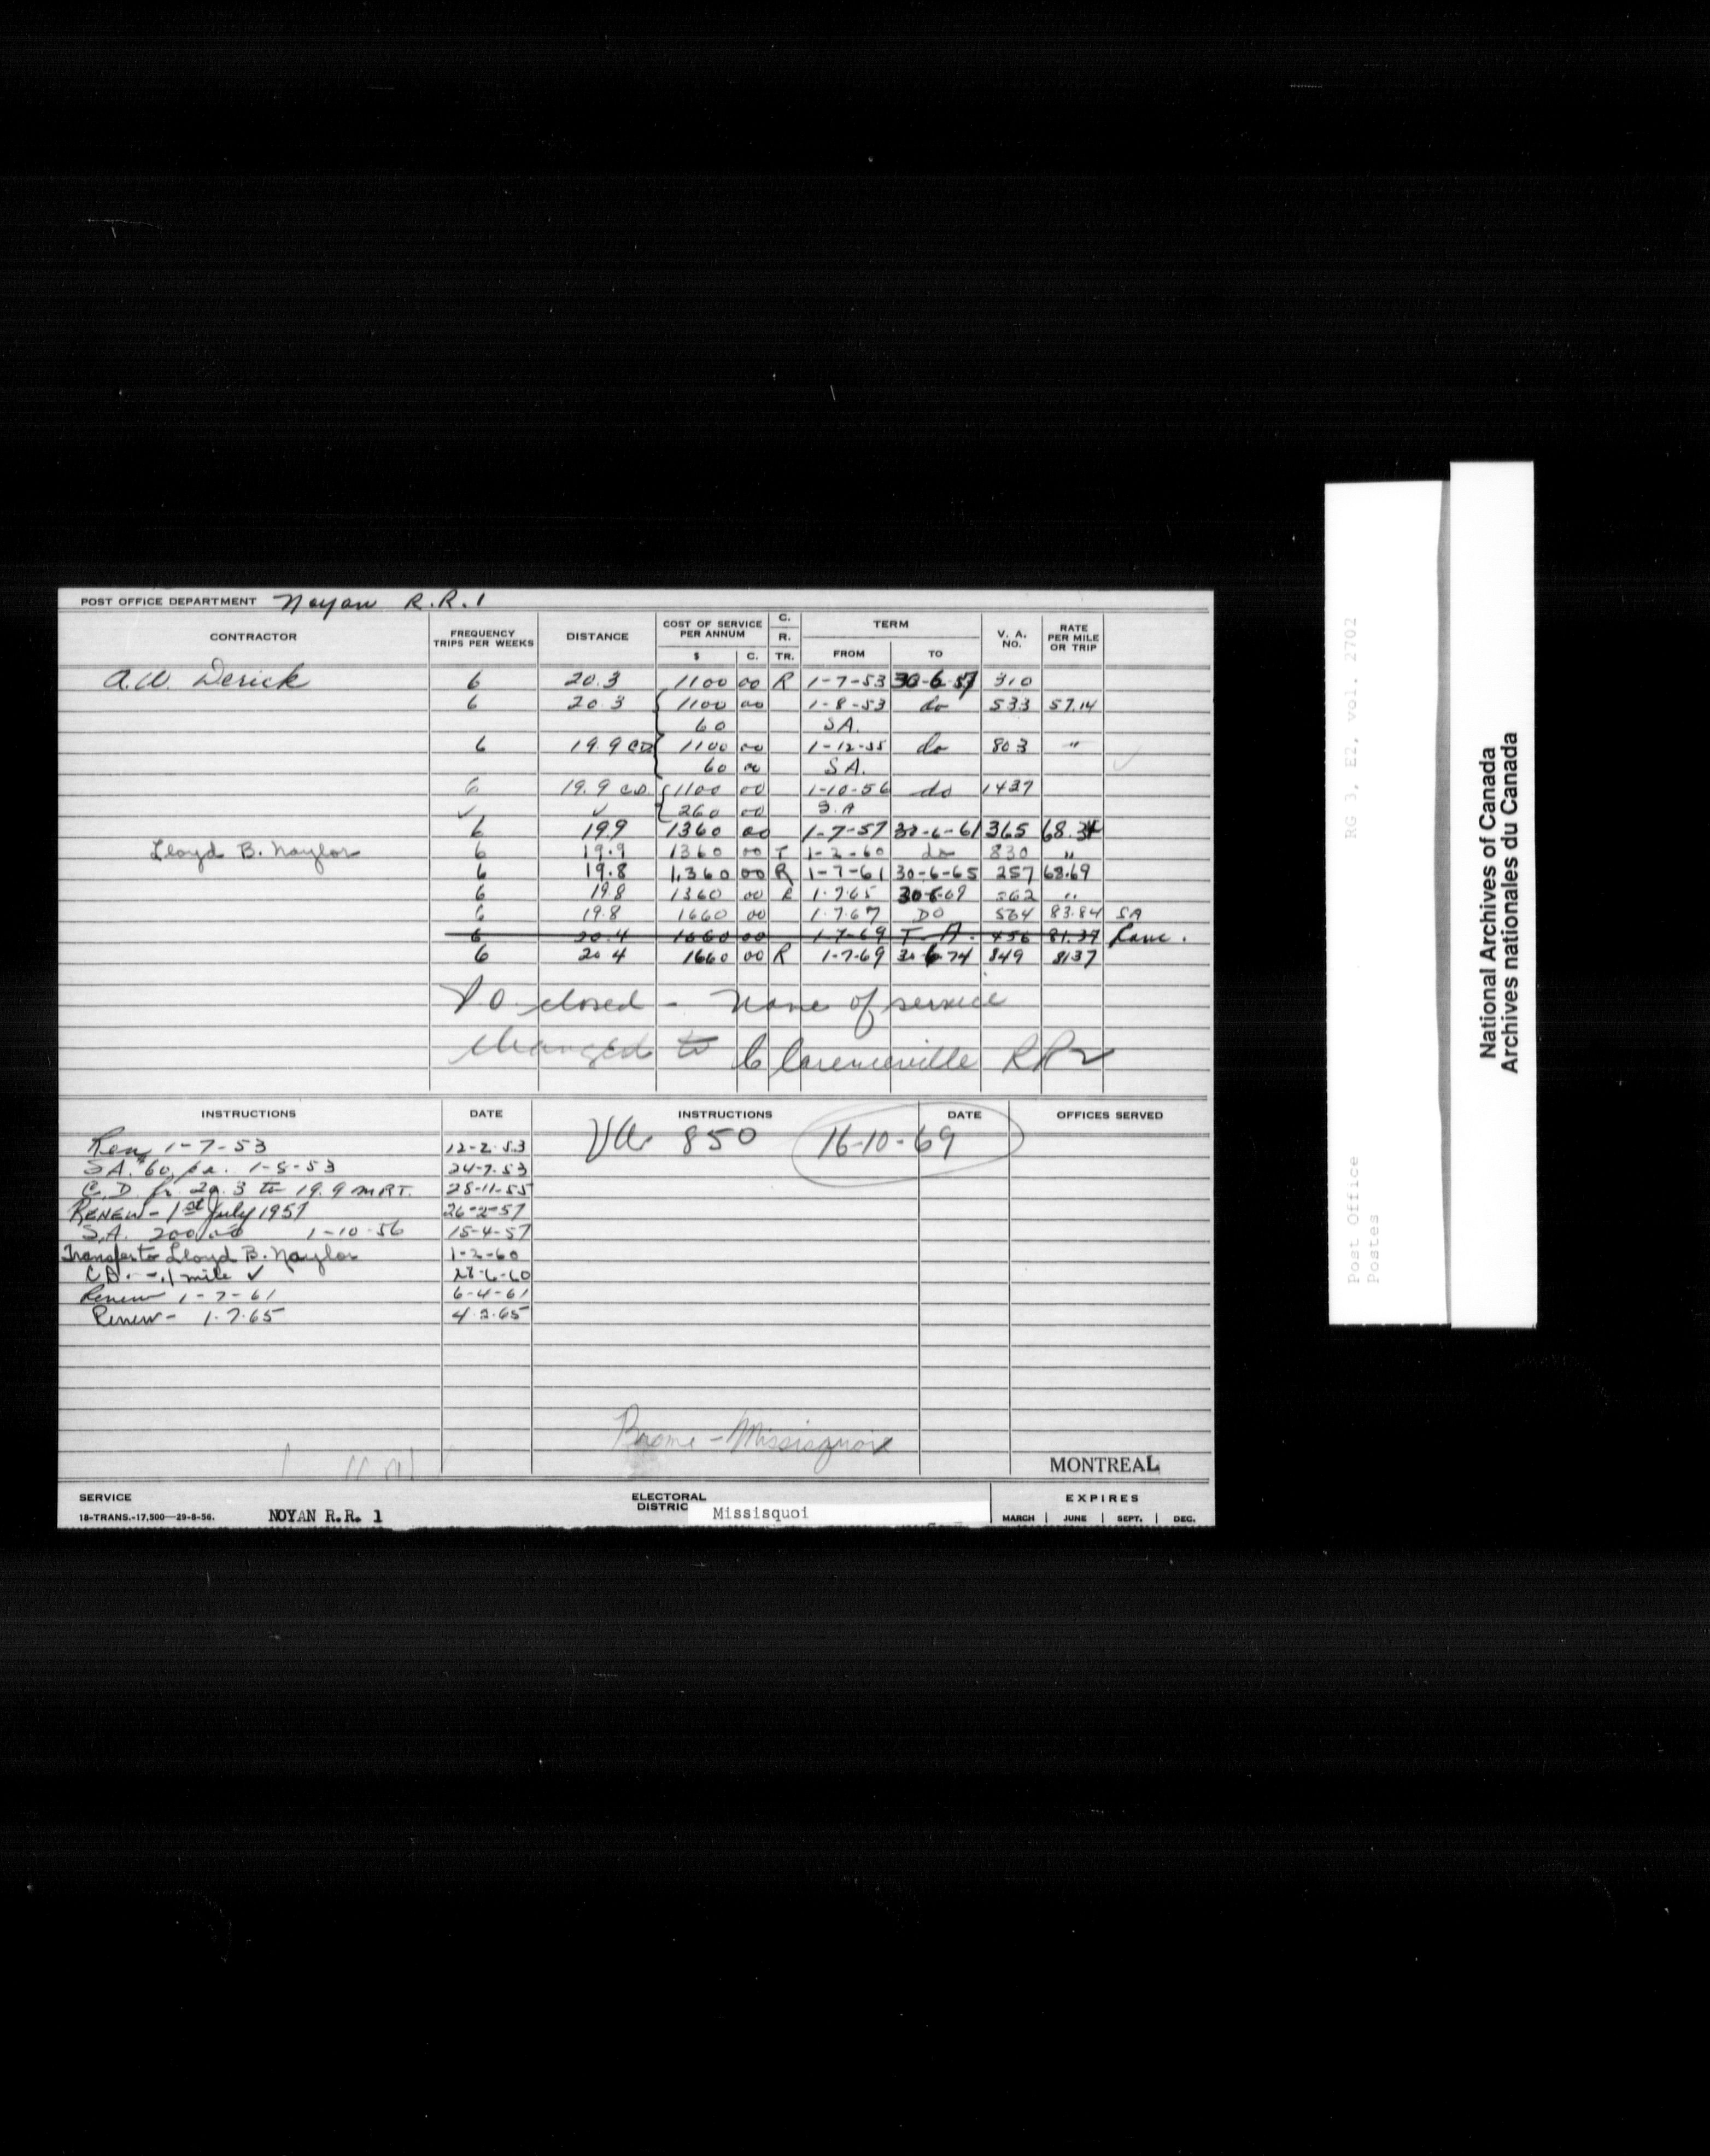 POST OFFICE DEPARTMENT Noyan R.R.1
CONTRACTOR FREQUENCY TRIPS PER WEEKS DISTANCE COST OF SERVICE PER ANNUM $ C. C. R. TR. TERM FROM TO V. A. NO. RATE PER MILE OR TRIP
A.W. Derick 6 20.3 1100 00 R 1-7-53 30-6-57 310
6 20.3 1100 00 1-8-53 do 533 57.14
60 SA.
6 19.9 CD 1100 00 1-12-55 do 803 "
60 00 SA.
6 19.9 CD. 1100 00 1-10-56 do 1437
✓ ✓ 260 00 S.A
6 19.9 1360 00 1-7-57 30-6-61 365 68.34
Lloyd B. Naylor 6 19.9 1360 00 T 1-2-60 do 830 "
6 19.8 1,360 00 R 1-7-61 30-6-65 257 68.69
6 19.8 1360 00 R 1-7-65 30-6-69 262 "
6 19.8 1660 00 1-7-67 DO 564 83.84 SA
6 20.4 1660 00 1-7-69 T.A. 456 81.37
6 20.4 1660 00 R 1-7-69 30-6-74 849 81.37
P.O. closed - Name of service
changed to Clarenceville RR2
INSTRUCTIONS DATE INSTRUCTIONS DATE OFFICES SERVED
VA 850 16-10-69
Ren 1-7-53 12-2-53
S.A. $60 p.a. 1-8-53 24-7-53
C.D. fr. 20.3 to 19.9 m RT. 28-11-55
RENEW - 1st July 1957 26-2-57
S.A. 200.00 1-10-56 15-4-57
Transfer to Lloyd B. Naylor 1-2-60
C.D. -.1 mile ✓ 28-6-60
Renew 1-7-61 6-4-61
Renew - 1-7-65 4-2-65
Brome-Missisquoi
MONTREAL
SERVICE ELECTORAL DISTRIC EXPIRES
18-TRANS.-17,500—29-8-56. NOYAN R.R. 1 Missisquoi MARCH | JUNE | SEPT. | DEC.
RG 3, E2, vol. 2702
Post Office
Postes
National Archives of Canada
Archives nationales du Canada